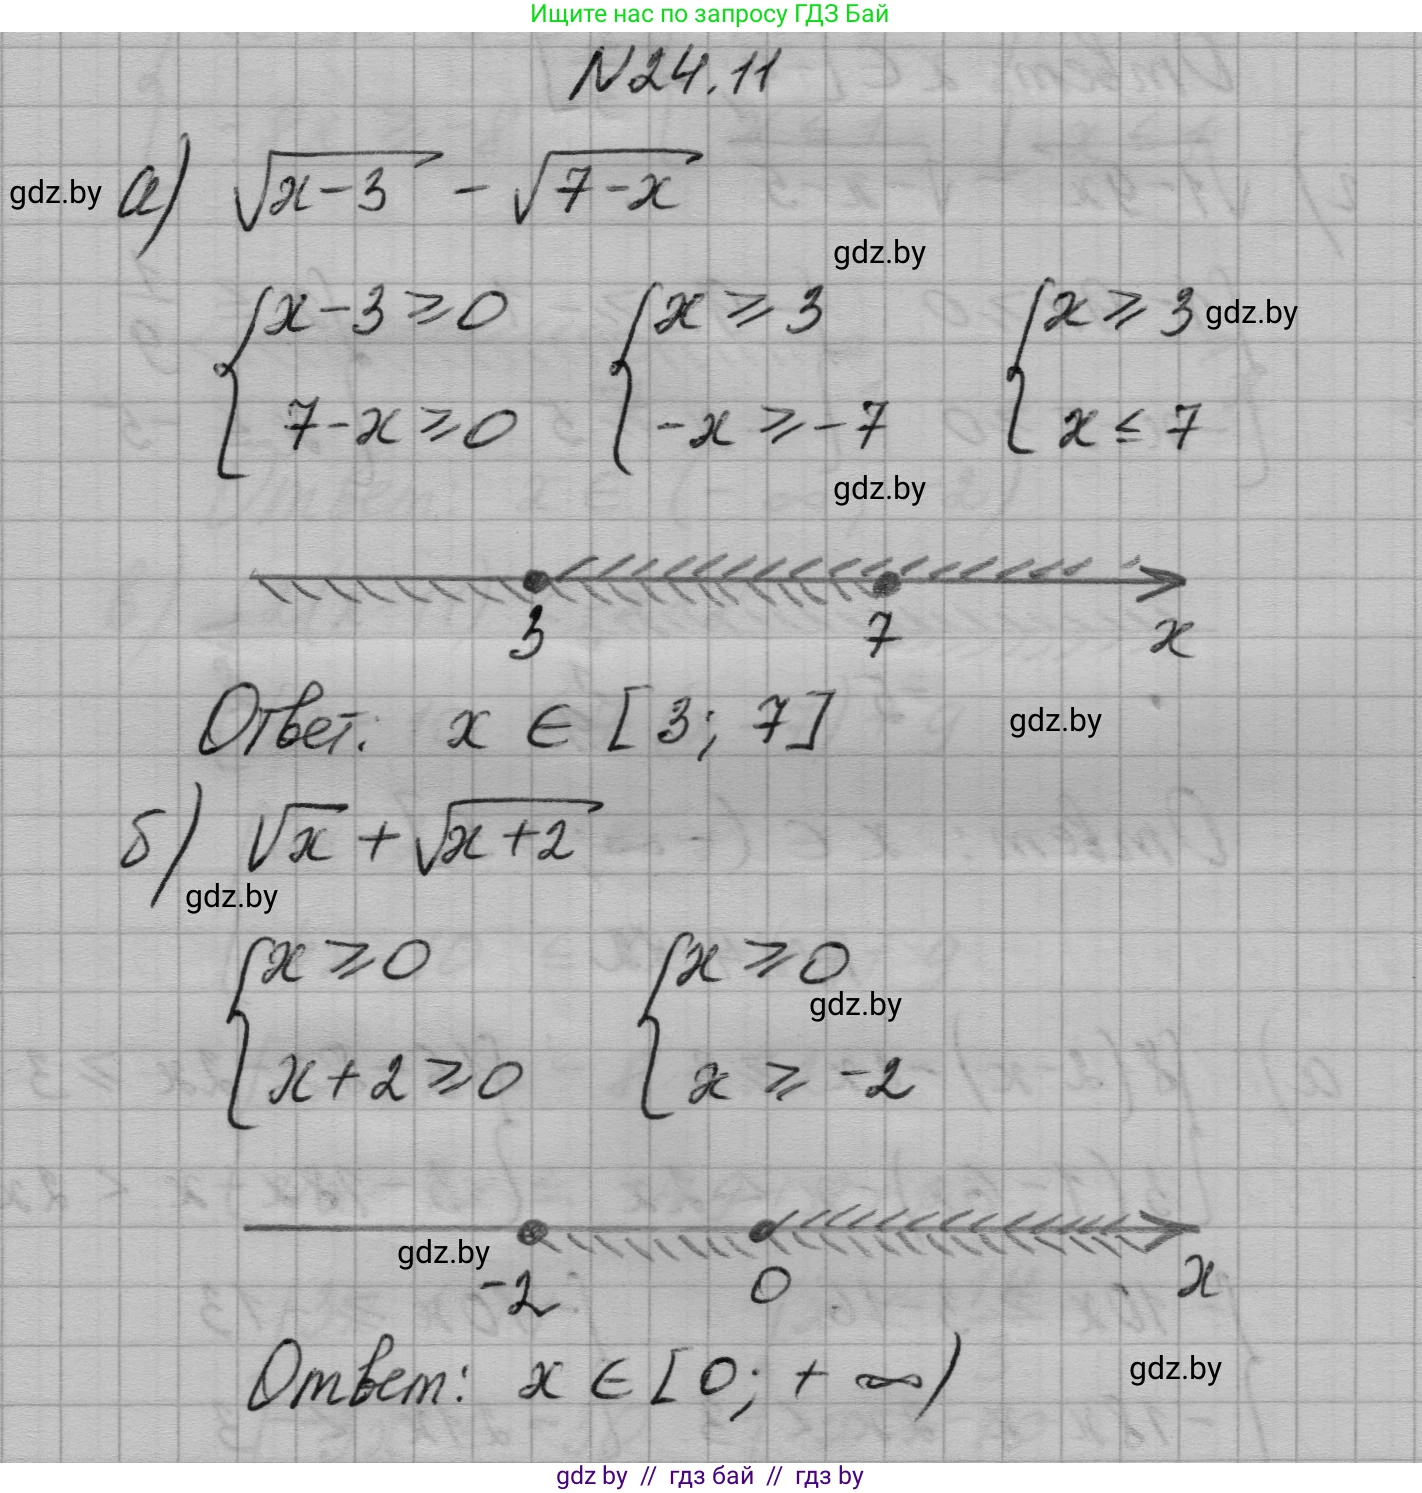 Ищите нас по запросу ГДЗ Бай
N24.11
gdz.by а) √(x-3) - √(7-x)
gdz.by
{x-3 ≥ 0 {x ≥ 3 {x ≥ 3 gdz.by
7-x ≥ 0 -x ≥ -7 x ≤ 7
gdz.by
3 7 x
Ответ: x ∈ [3; 7] gdz.by
б) √x + √(x+2)
gdz.by
{x ≥ 0 {x ≥ 0
gdz.by
x+2 ≥ 0 x ≥ -2
gdz.by
-2 0 x
Ответ: x ∈ [0; +∞) gdz.by
gdz by // гдз бай // гдз by